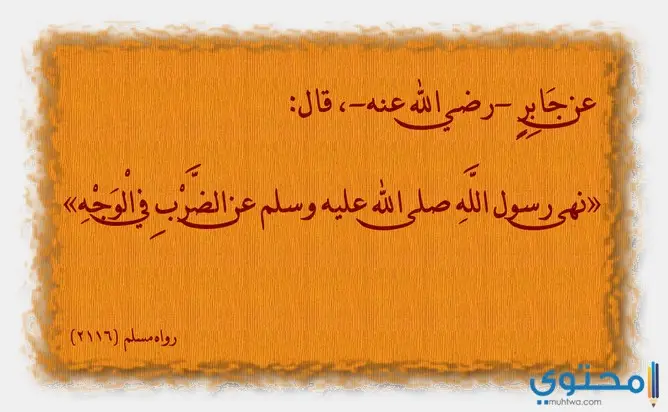 عن جَابِرٍ -رضي الله عنه-، قال:
«نهى رسول اللَّهِ صلى الله عليه وسلم عن الضَّرْبِ فِي الْوَجْهِ»
رواه مسلم (٢١١٦)
محتوى
muhtwa.com